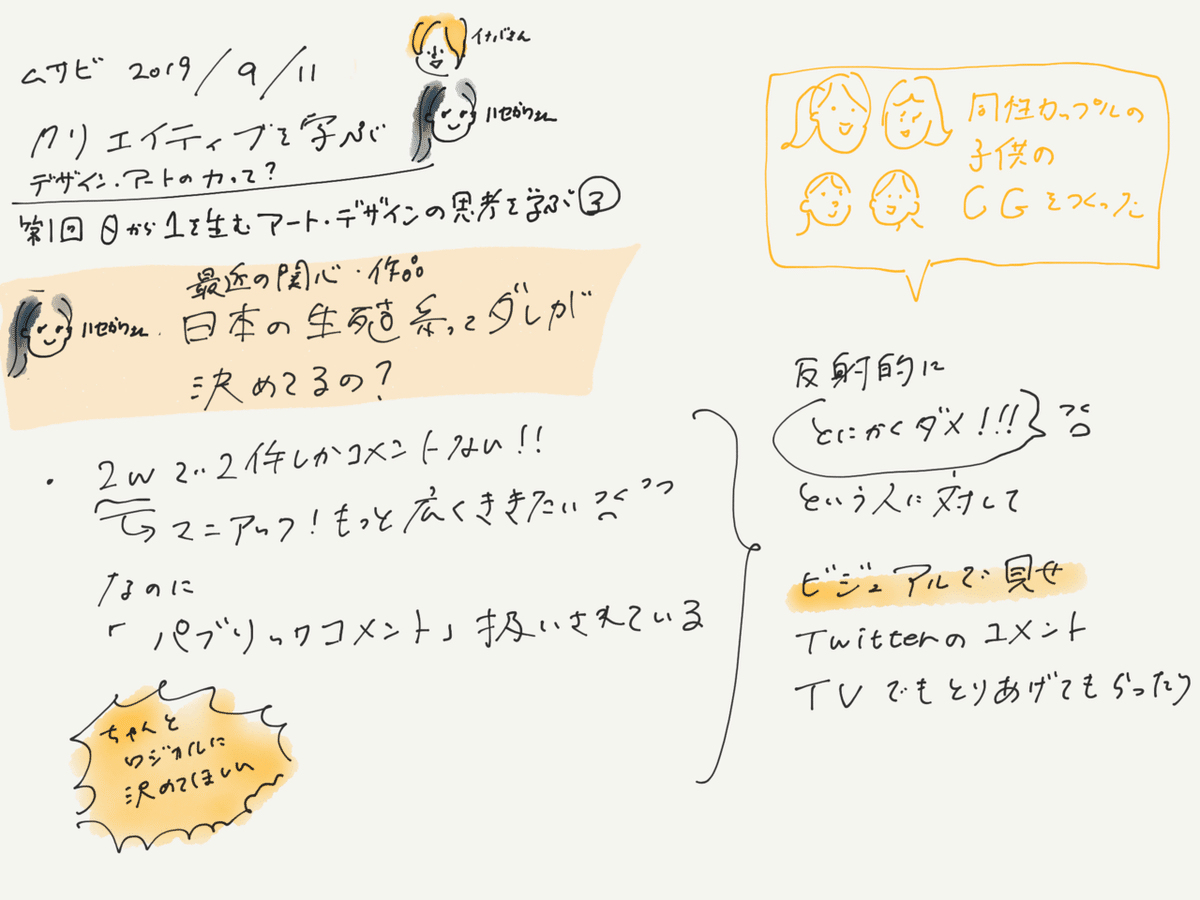 ムサビ 2019/9/11
クリエイティブを学ぶ
デザイン・アートの力って?
イナバさん
ハセガワさん
第1回 0から1を生むアート・デザインの思考を学ぶ③
最近の関心・作品
ハセガワさん
日本の生殖系ってダレが
決めてるの?
・2wで2件しかコメントない!!
マニアック!もっと広くききたい
なのに
「パブリックコメント」扱いされている
ちゃんと
ロジカルに
決めてほしい
同性カップルの
子供の
CGをつくった
反射的に
とにかくダメ!!!
という人に対して
ビジュアルで見せ
Twitterのコメント
TVでもとりあげてもらったり